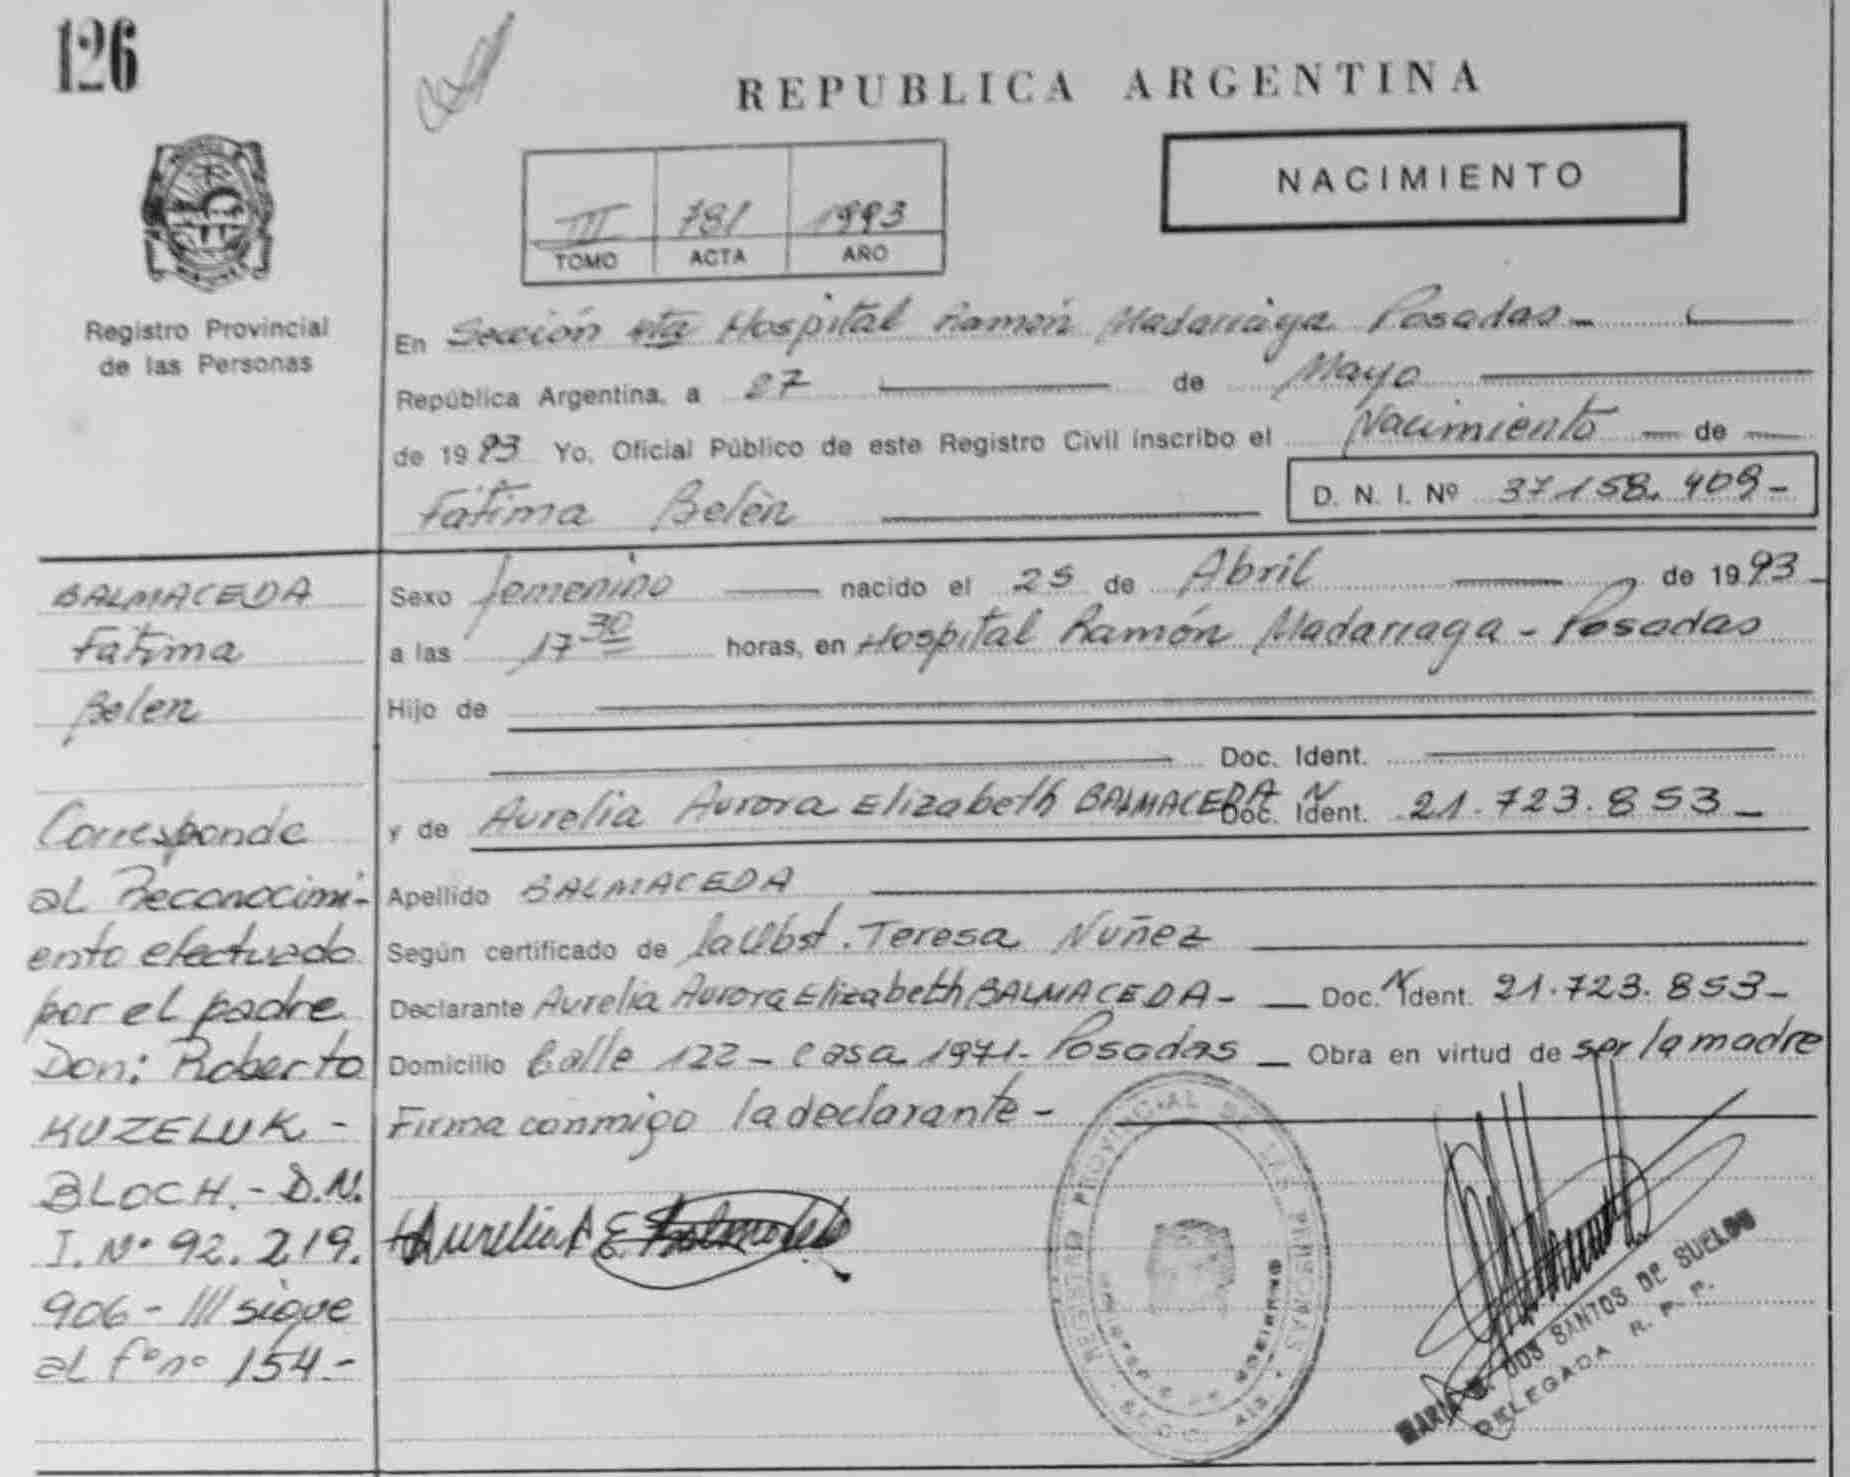 126
REPUBLICA ARGENTINA
NACIMIENTO
III 781 1993
TOMO ACTA AÑO
Registro Provincial
de las Personas
En Sección 4ta Hospital Ramón Madariaga Posadas-
República Argentina, a 27 de Mayo
de 1993 Yo, Oficial Público de este Registro Civil inscribo el Nacimiento de
Fátima Belén D. N. I. Nº 37158.409-
BALMACEDA
Fatima
Belen
Corresponde
al Reconocimi-
ento efectuado
por el padre
Don: Roberto
KUZELUK -
BLOCH.- D.N.
I. Nº 92.219.
906- /// sigue
al fº nº 154.-
Sexo femenino nacido el 25 de Abril de 1993-
a las 17 30 horas, en Hospital Ramón Madariaga - Posadas
Hijo de
Doc. Ident.
y de Aurelia Aurora Elizabeth BALMACEDA Doc. Ident. 21.723.853-
Apellido BALMACEDA
Según certificado de la Obst. Teresa Nuñez
Declarante Aurelia Aurora Elizabeth BALMACEDA- Doc. Ident. 21.723.853-
Domicilio Calle 122- casa 1971- Posadas Obra en virtud de ser la madre
Firma conmigo la declarante-
Aurelia A E
REGISTRO PROVINCIAL DE LAS PERSONAS
MARIA DOS SANTOS DE SUELDO
DELEGADA R. P. P.